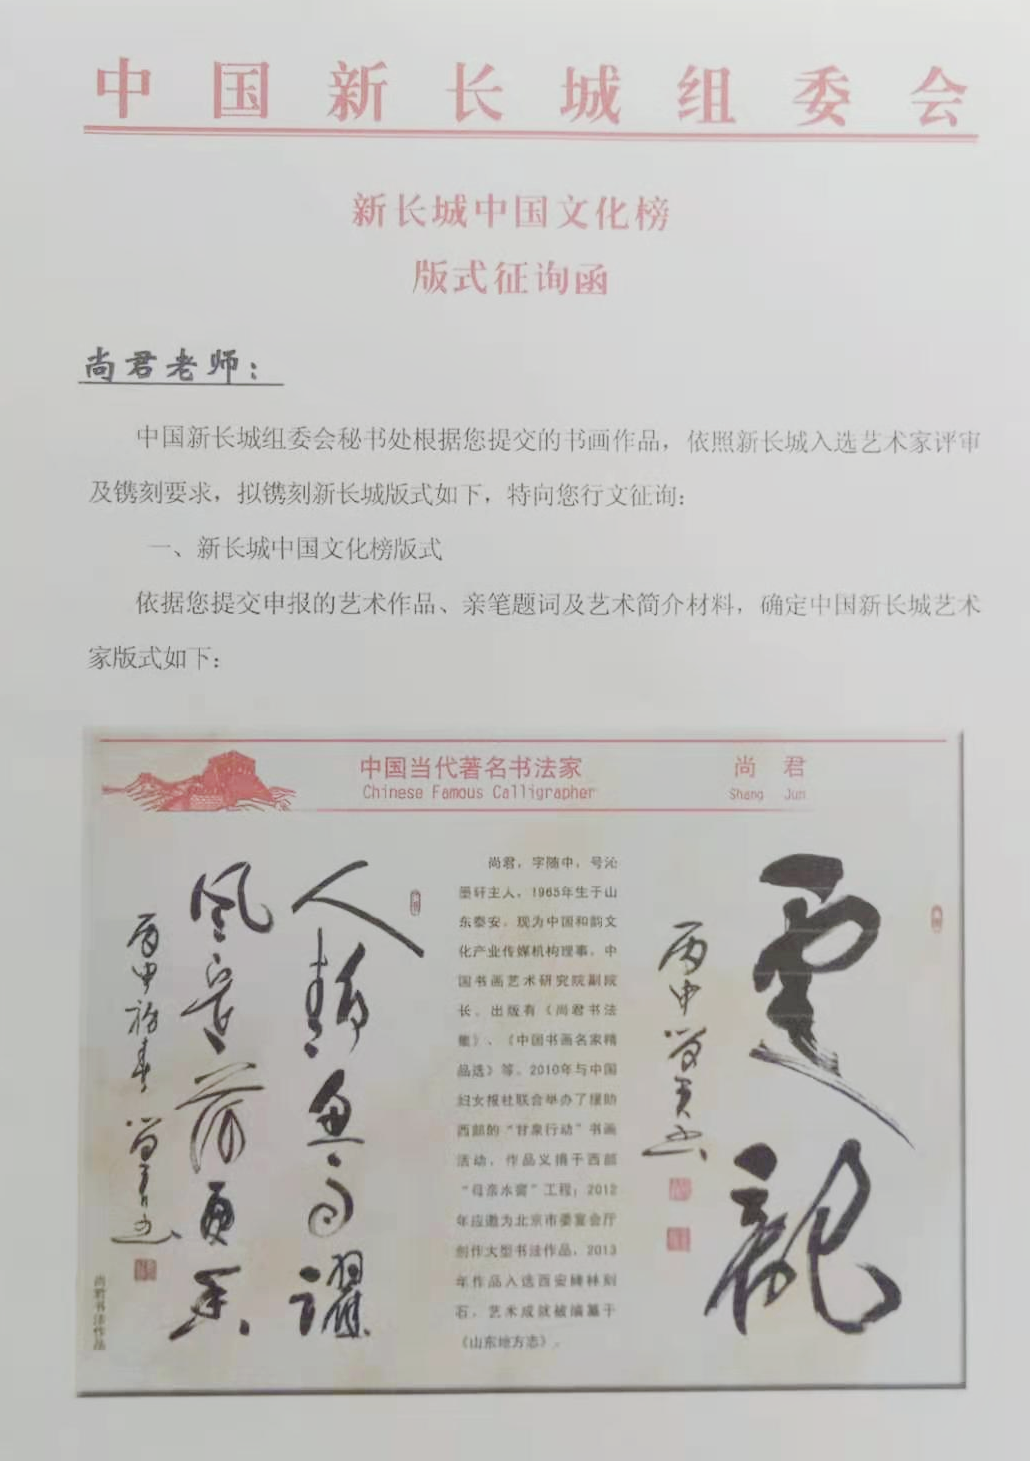 中国新长城组委会
新长城中国文化榜
版式征询函
尚君老师：
中国新长城组委会秘书处根据您提交的书画作品，依照新长城入选艺术家评审
及镌刻要求，拟镌刻新长城版式如下，特向您行文征询：
一、新长城中国文化榜版式
依据您提交申报的艺术作品、亲笔题词及艺术简介材料，确定中国新长城艺术
家版式如下：
中国当代著名书法家
Chinese Famous Calligrapher
尚 君
Shang Jun
尚君，字随中，号沁
墨轩主人，1965年生于山
东泰安。现为中国和韵文
化产业传媒机构理事，中
国书画艺术研究院副院
长。出版有《尚君书法
集》、《中国书画名家精
品选》等。2010年与中国
妇女报社联合举办了援助
西部的“甘泉行动”书画
活动，作品义捐于西部
“母亲水窖”工程；2012
年应邀为北京市委宴会厅
创作大型书法作品，2013
年作品入选西安碑林刻
石，艺术成就被编纂于
《山东地方志》。
丙申
人
风
丙申
尚君书法作品